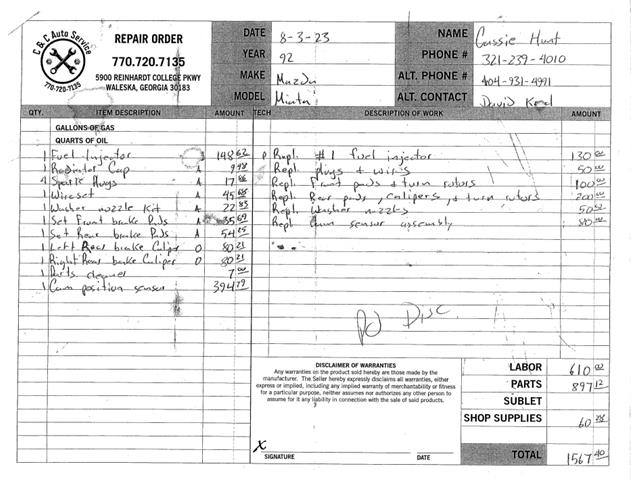 C & C Auto Service
770-720-7135
REPAIR ORDER
770.720.7135
5900 REINHARDT COLLEGE PKWY
WALESKA, GEORGIA 30183
DATE 8-3-23
YEAR 92
MAKE Mazda
MODEL Miata
NAME Cassie Hunt
PHONE # 321-239-4010
ALT. PHONE # 404-931-4991
ALT. CONTACT David
QTY. ITEM DESCRIPTION AMOUNT TECH DESCRIPTION OF WORK AMOUNT
GALLONS OF GAS
QUARTS OF OIL
1 Fuel Injector 148 62 P Repl. #1 fuel injector 130 00
1 Radiator Cap A 9 98 Repl. plugs + wires 50 00
4 Spark Plugs A 17 Repl. Front pads + turn rotors 100 00
1 Wire set A 45 Repl. Rear pads, calipers, + turn rotors 200 00
1 Washer nozzle Kit A 22 83 Repl. Washer nozzles 50
1 Set Front brake Pads A 35 69 Repl. Cam sensor assembly 80 00
1 Set Rear brake Pads A 54
1 Left Rear brake Caliper O 80 23
1 Right Rear brake Caliper O 80 23
1 Parts cleaner 7 00
1 Cam position sensor 394 79
Pd Disc.
DISCLAIMER OF WARRANTIES
Any warranties on the product sold hereby are those made by the
manufacturer. The Seller hereby expressly disclaims all warranties, either
express or implied, including any implied warranty of merchantability or fitness
for a particular purpose, neither assumes nor authorizes any other person to
assume for it any liability in connection with the sale of said products.
X
SIGNATURE DATE
LABOR 610 00
PARTS 897 12
SUBLET
SHOP SUPPLIES 60 28
TOTAL 1567 40